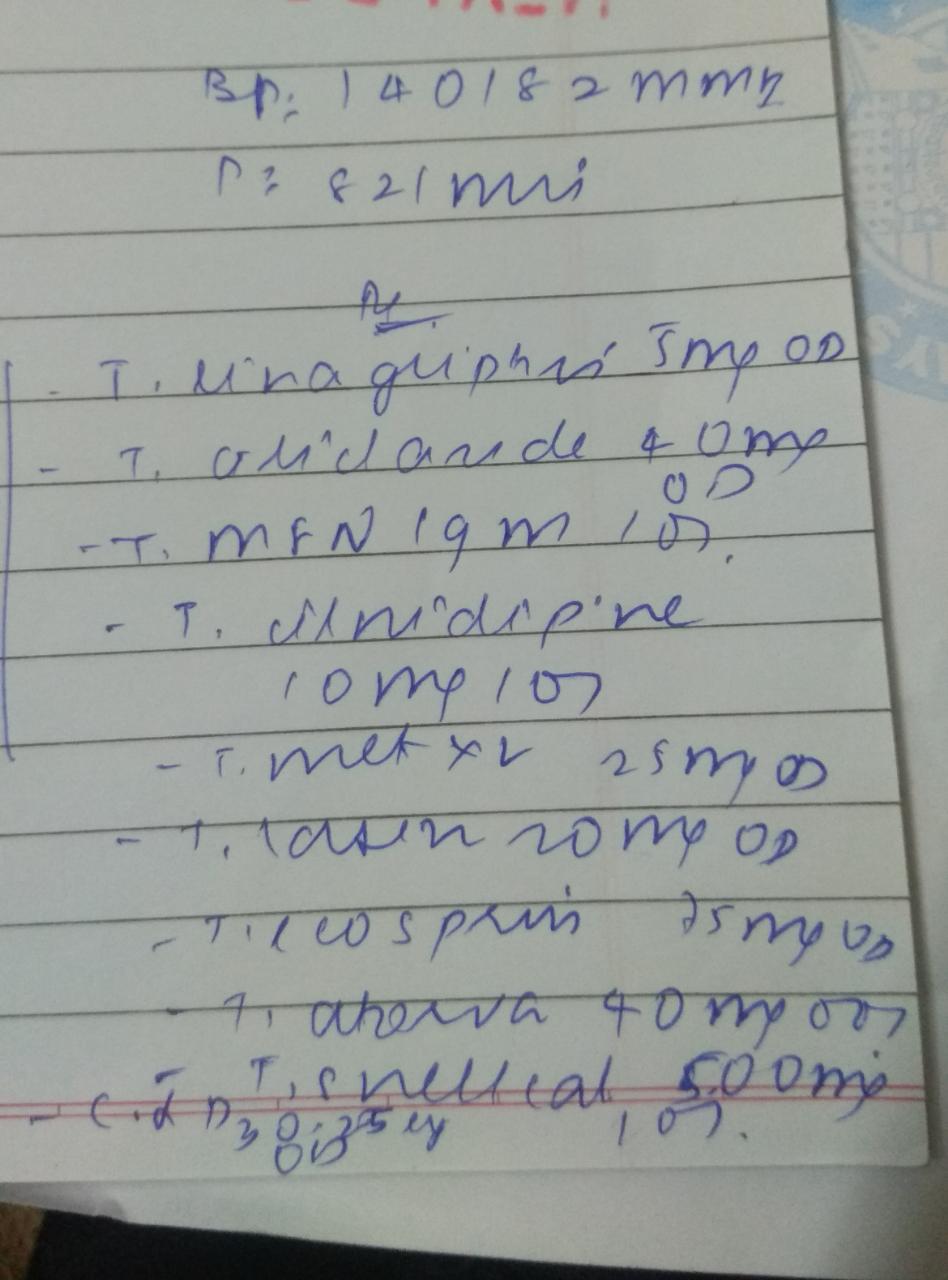 BP: 140/82 mmHg
P: 82/min
Rx
- T. Linagliptin 5mg OD
- T. Gliclazide 40mg
OD
- T. MFN 1gm 1OD.
- T. Cilnidipine
10mg 1OD
- T. Met XL 25mg OD
- T. Lasix 20mg OD
- T. Ecosprin 75mg OD
- T. atorva 40mg OD
- T. Shelcal 500mg
1OD.
- C. α D3 0.25
OD